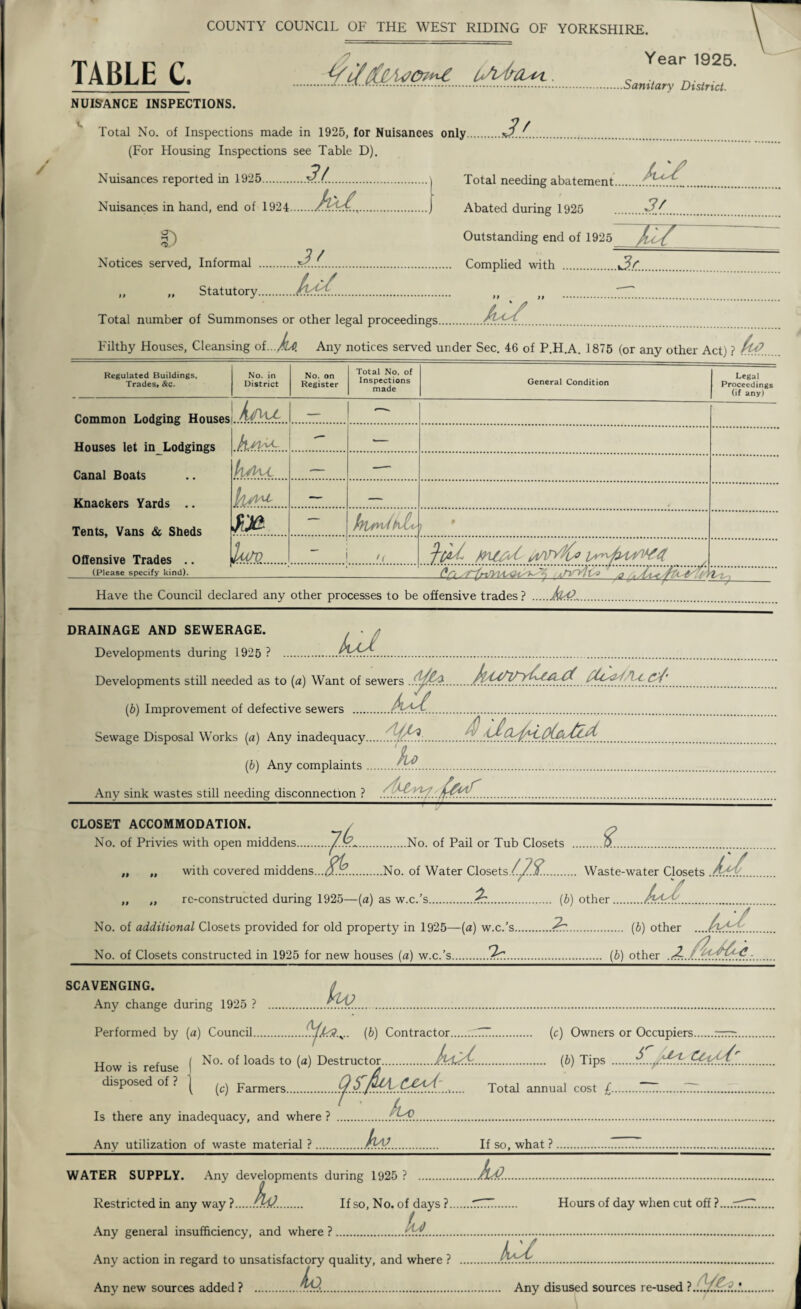 COUNTY COUNCIL OF THE WEST RIDING OF YORKSHIRE.
TABLE C. Gildersome Urban. Year 1925.
Sanitary District.
NUISANCE INSPECTIONS.
Total No. of Inspections made in 1925, for Nuisances only 31
(For Housing Inspections see Table D).
Nuisances reported in 1925 31 Total needing abatement nil
Nuisances in hand, end of 1924 nil Abated during 1925 31
Outstanding end of 1925 nil
Notices served, Informal 31 Complied with 31
„ „ Statutory nil „ „ —
Total number of Summonses or other legal proceedings nil
Filthy Houses, Cleansing of... no Any notices served under Sec. 46 of P.H.A. 1875 (or any other Act) ? no
Regulated Buildings, Trades, &c. No. in District No. on Register Total No. of Inspections made General Condition Legal Proceedings (if any)
Common Lodging Houses none — —
Houses let in Lodgings none — —
Canal Boats .. none — —
Knackers Yards .. none — —
Tents, Vans & Sheds five — monthly
Offensive Trades .. two — " fish meal works improved
(Please specify kind). works satisfactory
Have the Council declared any other processes to be offensive trades ? no
DRAINAGE AND SEWERAGE.
Developments during 1925 ? nil
Developments still needed as to (a) Want of sewers yes district
(b) Improvement of defective sewers nil
Sewage Disposal Works (a) Any inadequacy yes Dilapidated
(b) Any complaints no
Any sink wastes still needing disconnection ? very few
CLOSET ACCOMMODATION.
No. of Privies with open middens 76 No. of Pail or Tub Closets 8
„ „ with covered middens No. of Water Closets Waste-water Closets nil
„ „ re-constructed during 1925—(a) as w.c.'s 2 (b) other nil
No. of additional Closets provided for old property in 1925—(a) w.c.'s 2 (b) other nil
No. of Closets constructed in 1925 for new houses (a) w.c.'s 2 (b) other 2 Public
SCAVENGING.
Any change during 1925 ? no
Performed by (a) Council yes (b) Contractor — (c) Owners or Occupiers —
How is refuse disposed of ? No. of loads to (a) Destructor nil (b) Tips 5 per cent
(c) Farmers 95 per cent Total annual cost £ — —
Is there any inadequacy, and where ? no
Any utilization of waste material ? no If so, what ? —
WATER SUPPLY. Any developments during 1925 ? no
Restricted in any way ? no If so, No. of days ? — Hours of day when cut off ? —
Any general insufficiency, and where ? no
Any action in regard to unsatisfactory quality, and where ? nil
Any new sources added ? no Any disused sources re-used ? yes